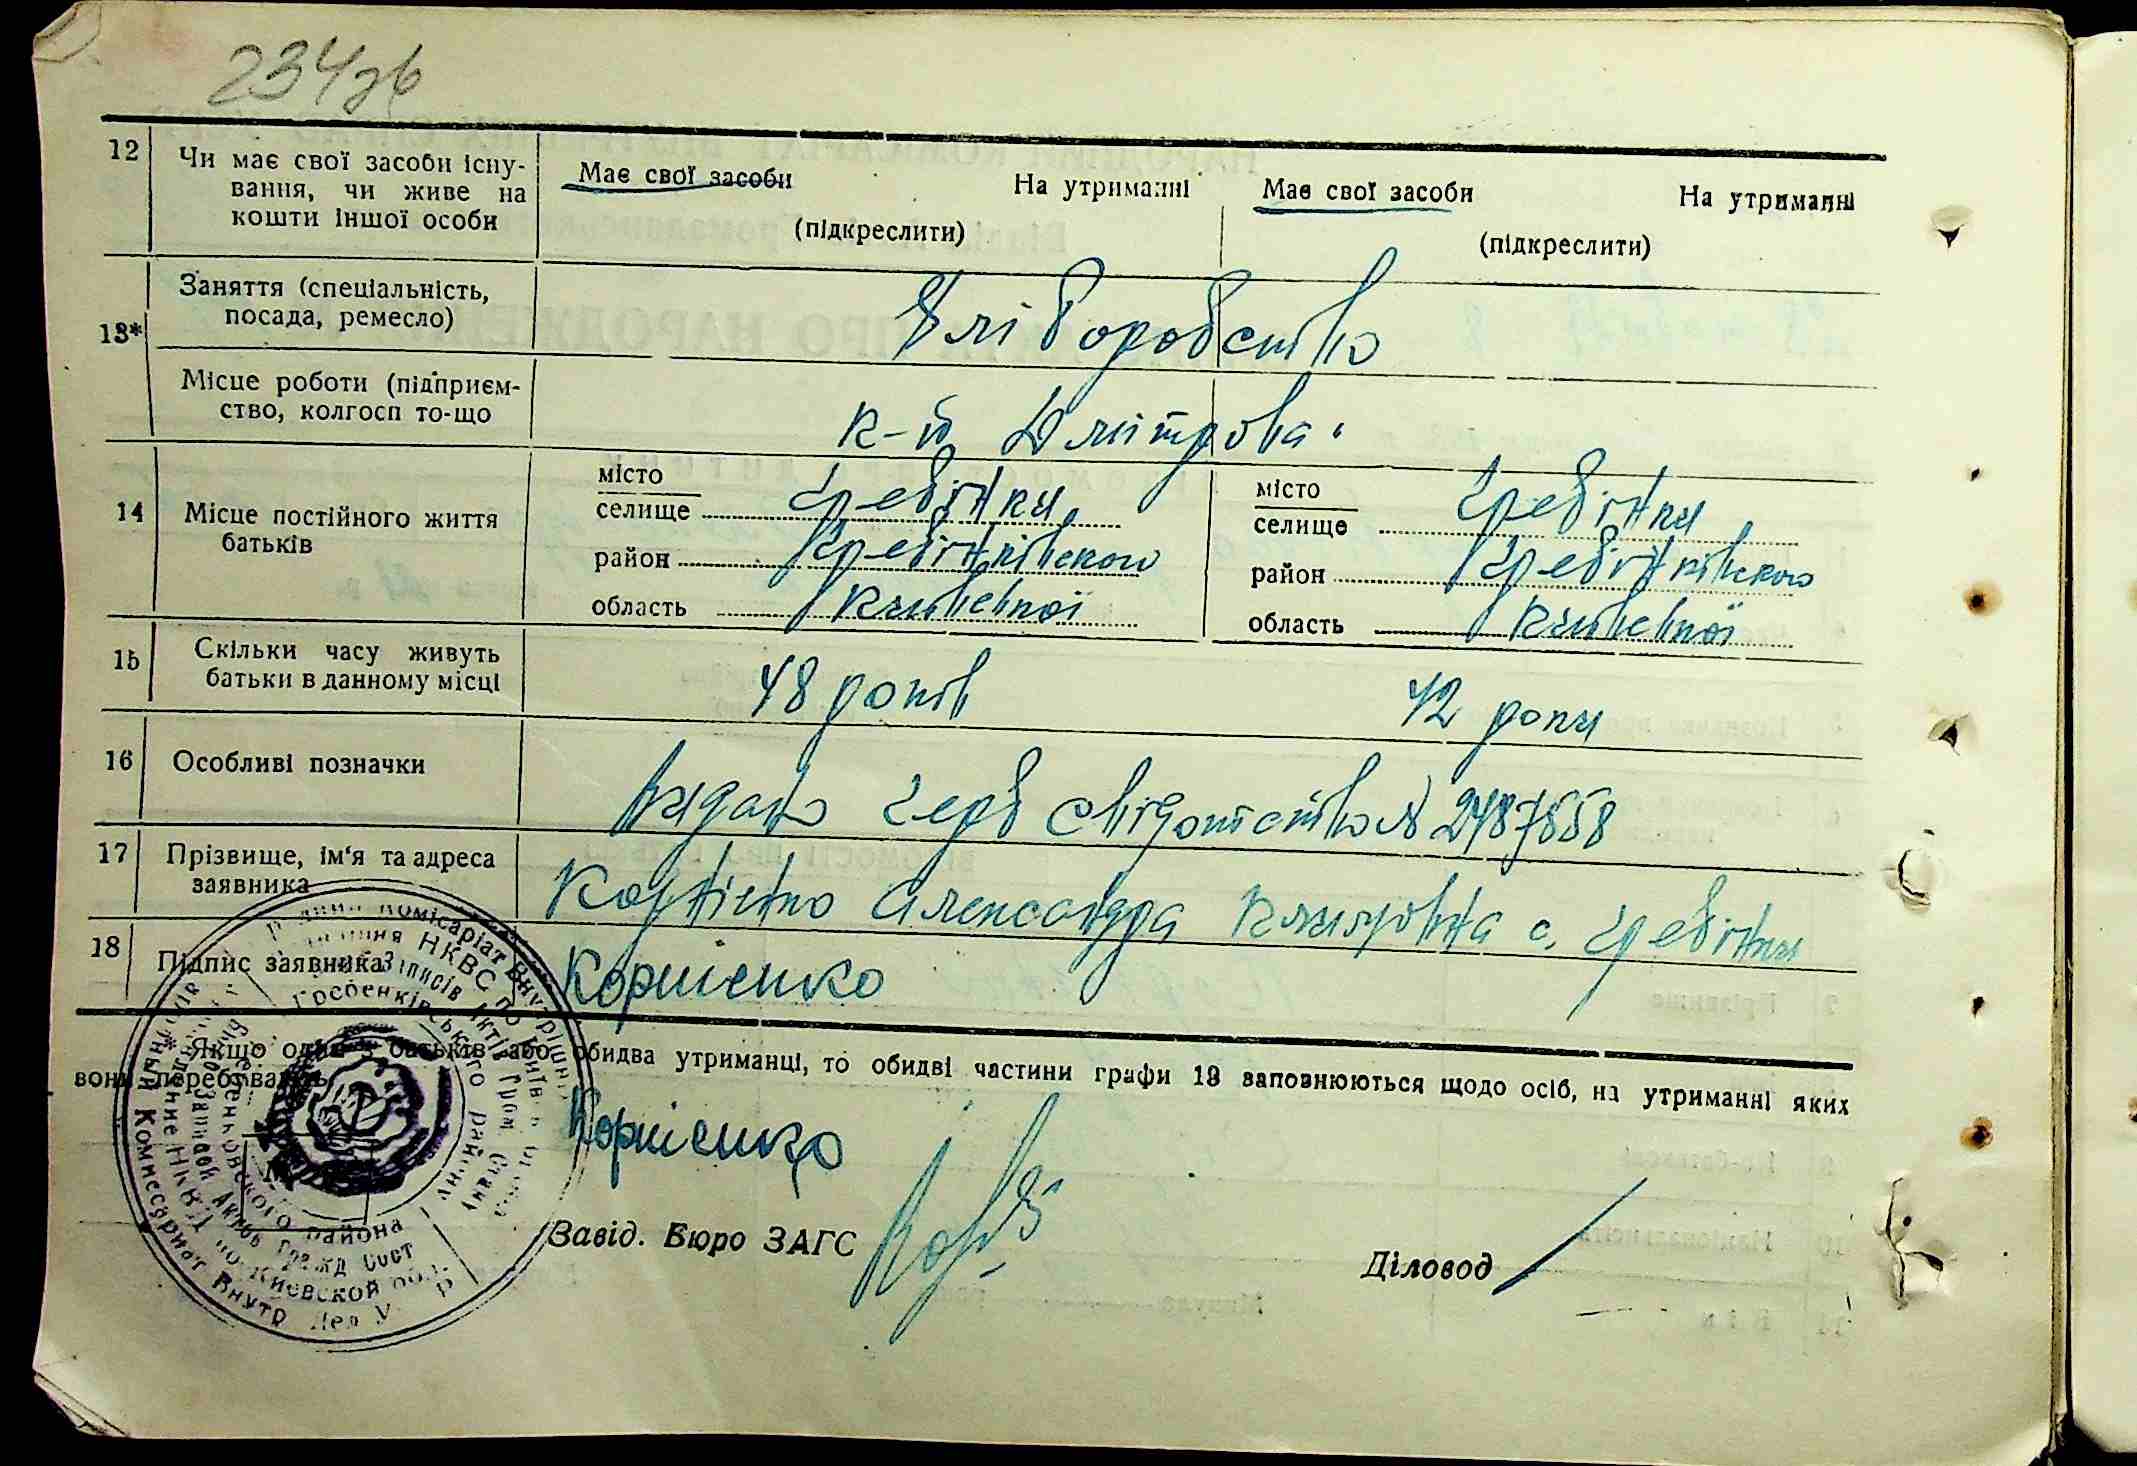 234зв
12 Чи має свої засоби існу-
вання, чи живе на
кошти іншої особи
Має свої засоби На утриманні
(підкреслити)
Має свої засоби На утриманні
(підкреслити)
13* Заняття (спеціальність,
посада, ремесло)
Хліборобство
Місце роботи (підприєм-
ство, колгосп то-що
к-п Дмітрова
14 Місце постійного життя
батьків
місто
селище Гребінки
район Гребінківского
область Київської
місто
селище Гребінки
район Гребінківского
область Київської
15 Скільки часу живуть
батьки в данному місці
48 років 42 роки
16 Особливі позначки
Видано герб свідоцтво № 2487558
17 Прізвище, ім'я та адреса
заявника
Корнієнко Александра Климовна с. Гребінки
18 Підпис заявника
Корнієнко
* Якщо один з батьків або обидва утриманці, то обидві частини графи 13 заповнюються щодо осіб, на утриманні яких
вони перебувають.
Корнієнко
Завід. Бюро ЗАГС
Діловод
Комісаріат Внутрішні
НКВС по
Записів Актів Гром Стану
Гребенківського району
Комиссариат Внутр Дел У
НКВД по Киевской обл.
Записей Актов Гражд Сост
района